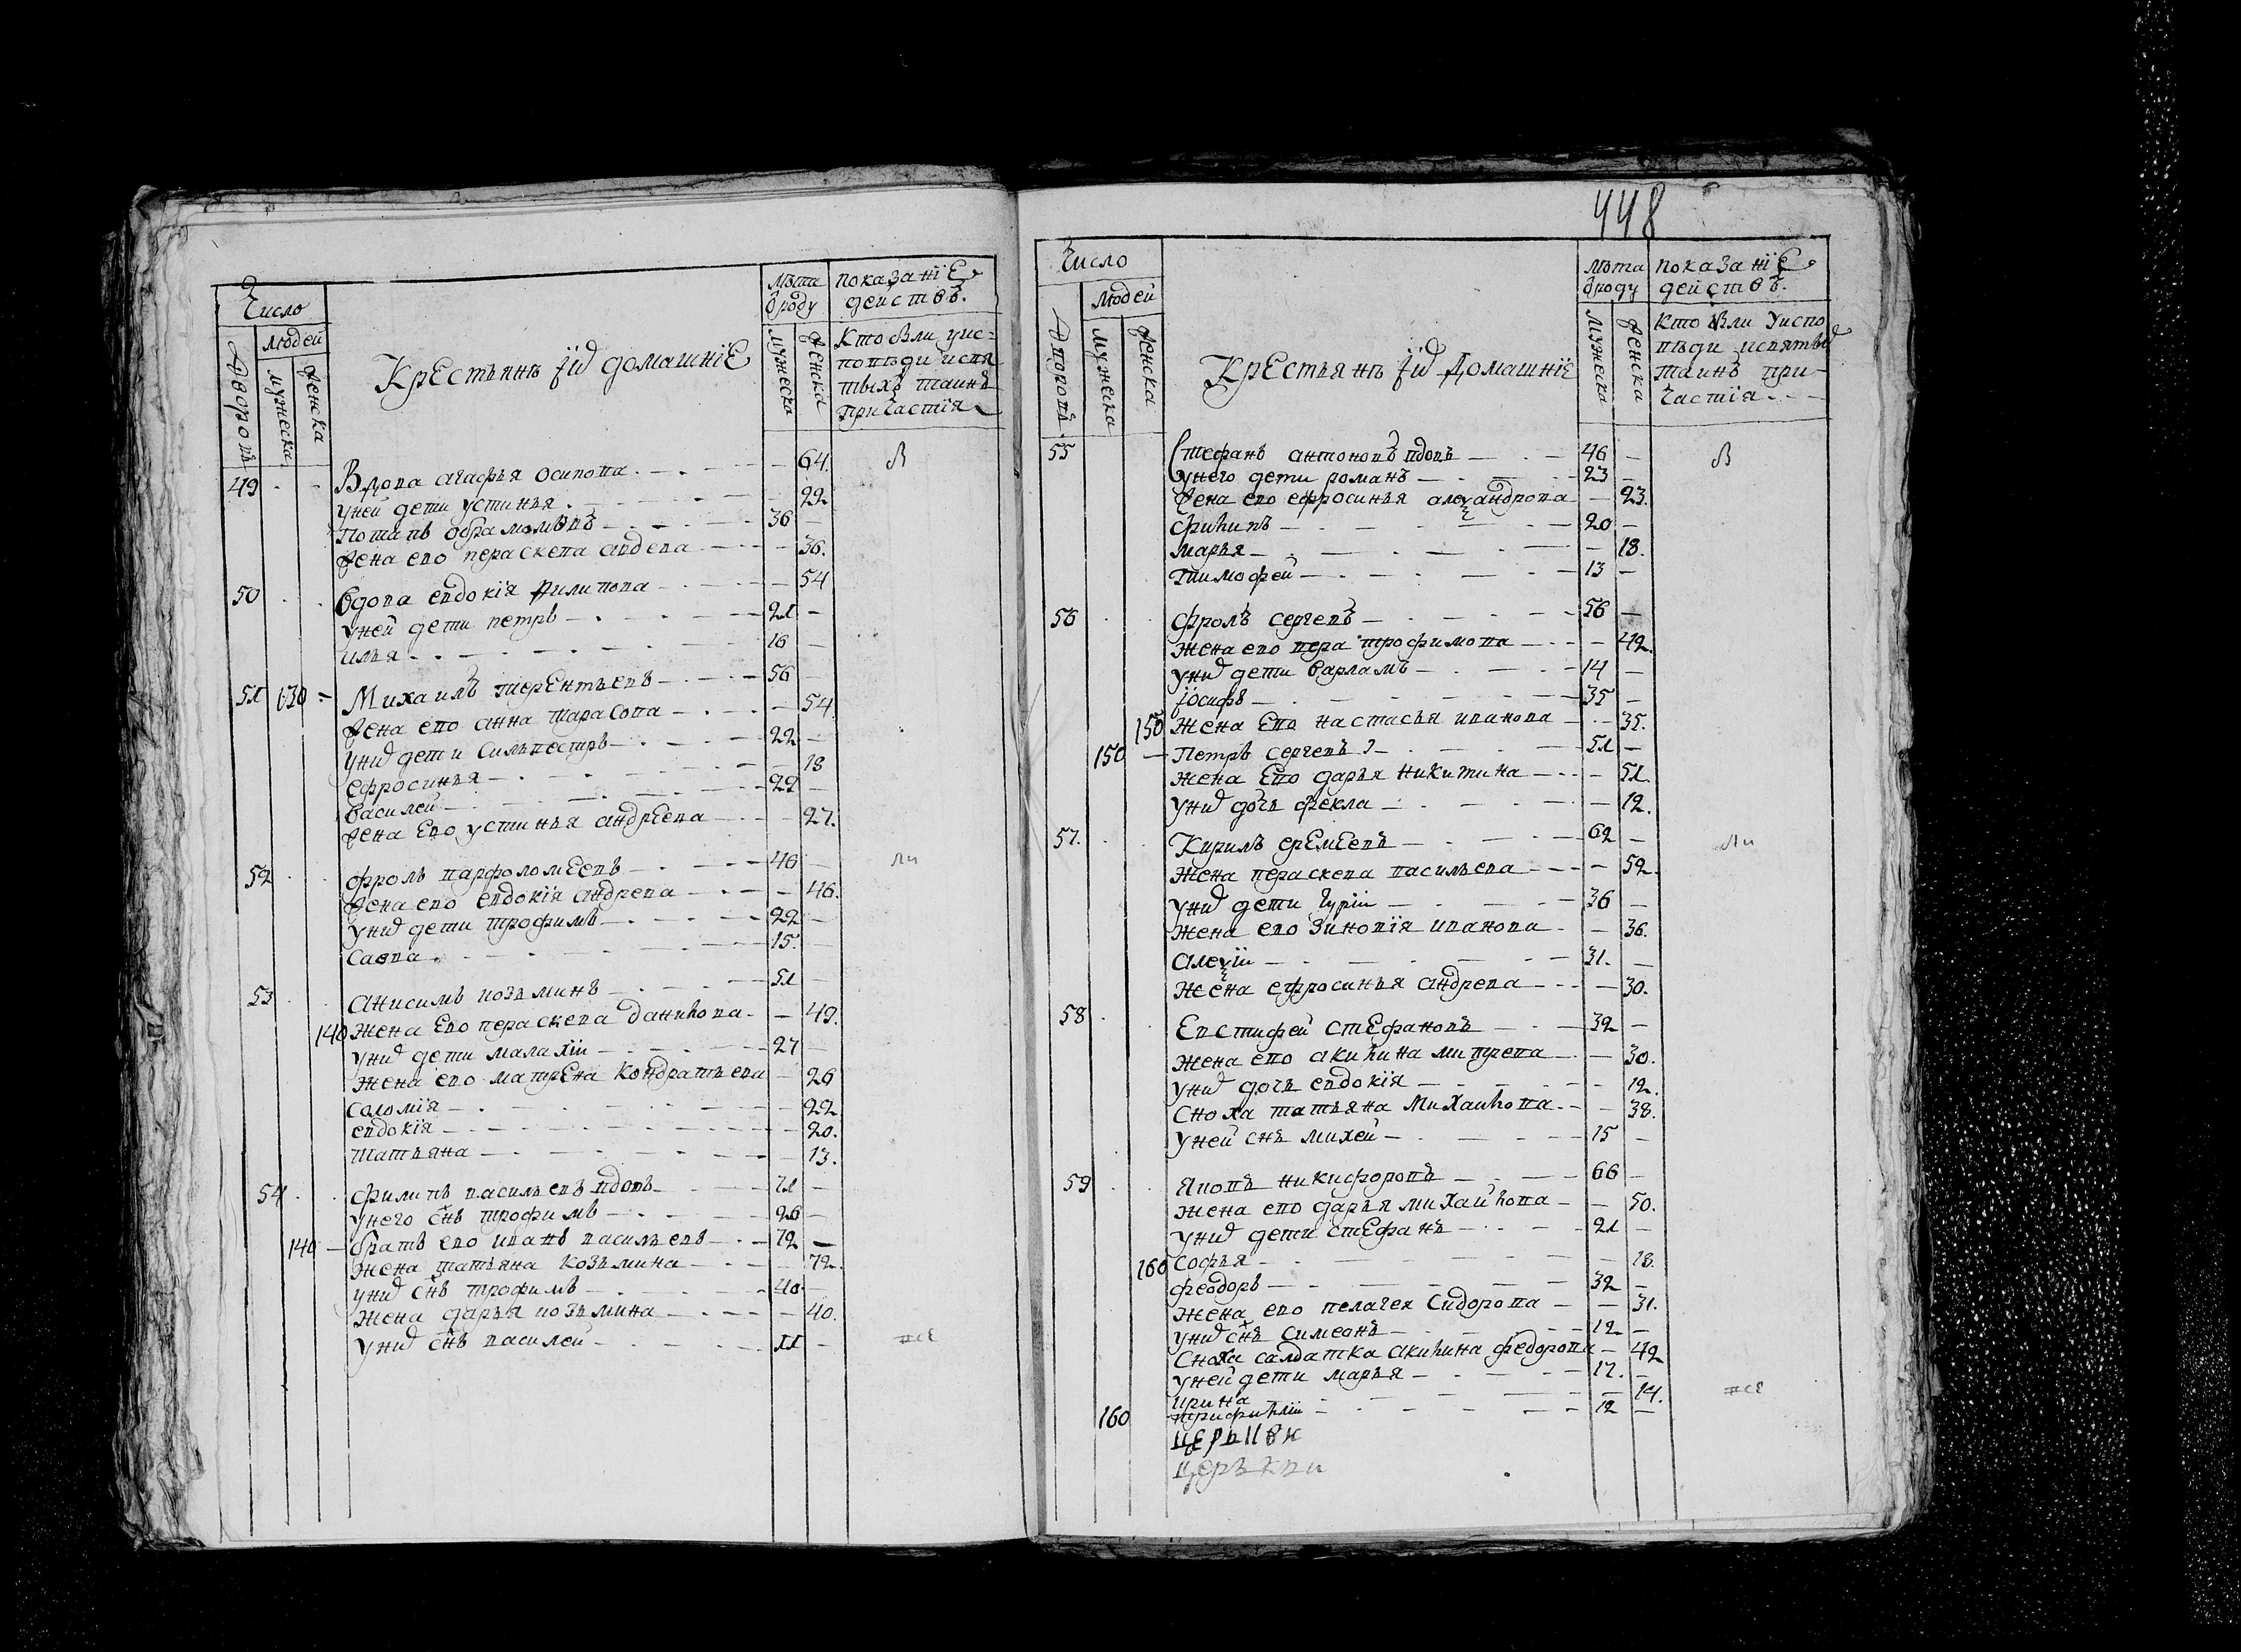 448
Число
людей
Дворовъ
мужеска
женска
Крестьянѣ їихъ домашнїе
лѣта
ѿроду
мужеска
женска
показанїе
действъ.
Кто былъ уис=
повѣди исвя
тыхъ таинъ
причастїя
49 Вдова агафья осипова 64.
уней дети устинья 22
Потапъ абрамовъ 36
жена ево параскева авдева 36.
50 Вдова евдокїя филипова 54
уней дети петръ 21
илья 16
51 130 Михаилъ терентьевъ 56
жена ево анна тарасова 54
уних дети силвестръ 22
ефросинья 18
василей 22
жена ево устинья андреева 27.
52 фролъ варфоломеевъ 46
жена ево евдокїя андрева 46.
уних дети трофимъ 22
савва 15.
53 анисимъ козминъ 51
140 жена ево параскева данилова 49.
уних дети малахїи 27
жена ево матрена кондратьева 26
соломїя 22
евдокїя 20.
татьяна 13.
54 филипъ васильевъ вдовъ 71
унего сн҃ъ трофимъ 26
140 братъ ево иванъ васильевъ 72
жена татьяна козьмина 72.
уних сн҃ъ трофимъ 40
жена дарья козьмина 40.
уних сн҃ъ василей 11
все
Число
людей
Дворовъ
мужеска
женска
Крестьянѣ їихъ домашнїе
лѣта
ѿроду
мужеска
женска
показанїе
действъ.
Кто былъ уиспо
вѣди исвятыхъ
таинъ при-
частїя
55 Стефанъ антоновъ вдовъ 46
унего дети романъ 23
жена ево ефросинья алеѯандрова 23.
филипъ 20
марья 18.
тимофей 13
56 фролъ сергевъ 56
жена ево вера трофимова 42.
уних дети варламъ 14
їосифъ 35
150 жена ево настасья иванова 35.
150 Петръ сергевъ 51
жена ево дарья никитина 51.
уних дочь фекла 12.
57. Кирилъ еремеевъ 62
жена параскева васильева 52.
уних дети гурїи 36
жена ево зиновїя иванова 36.
алеѯїи 31.
жена ефросинья андрева 30.
58 Евстифей стефановъ 32
жена ево акилина митрева 30.
уних дочь евдокїя 12.
сноха татьяна михаилова 38.
уней снъ михей 15
59 яковъ никифоровъ 66
жена ево дарья михаилова 50.
уних дети стефанъ 21
160 софья 18.
феодоръ 32
жена ево пелагея сидорова 31.
уних сн҃ъ симеонъ 12
сноха салдатка акилина федорова 42
уней дети марья 17.
ирина 14.
160 трифилїи 12
все
церькви